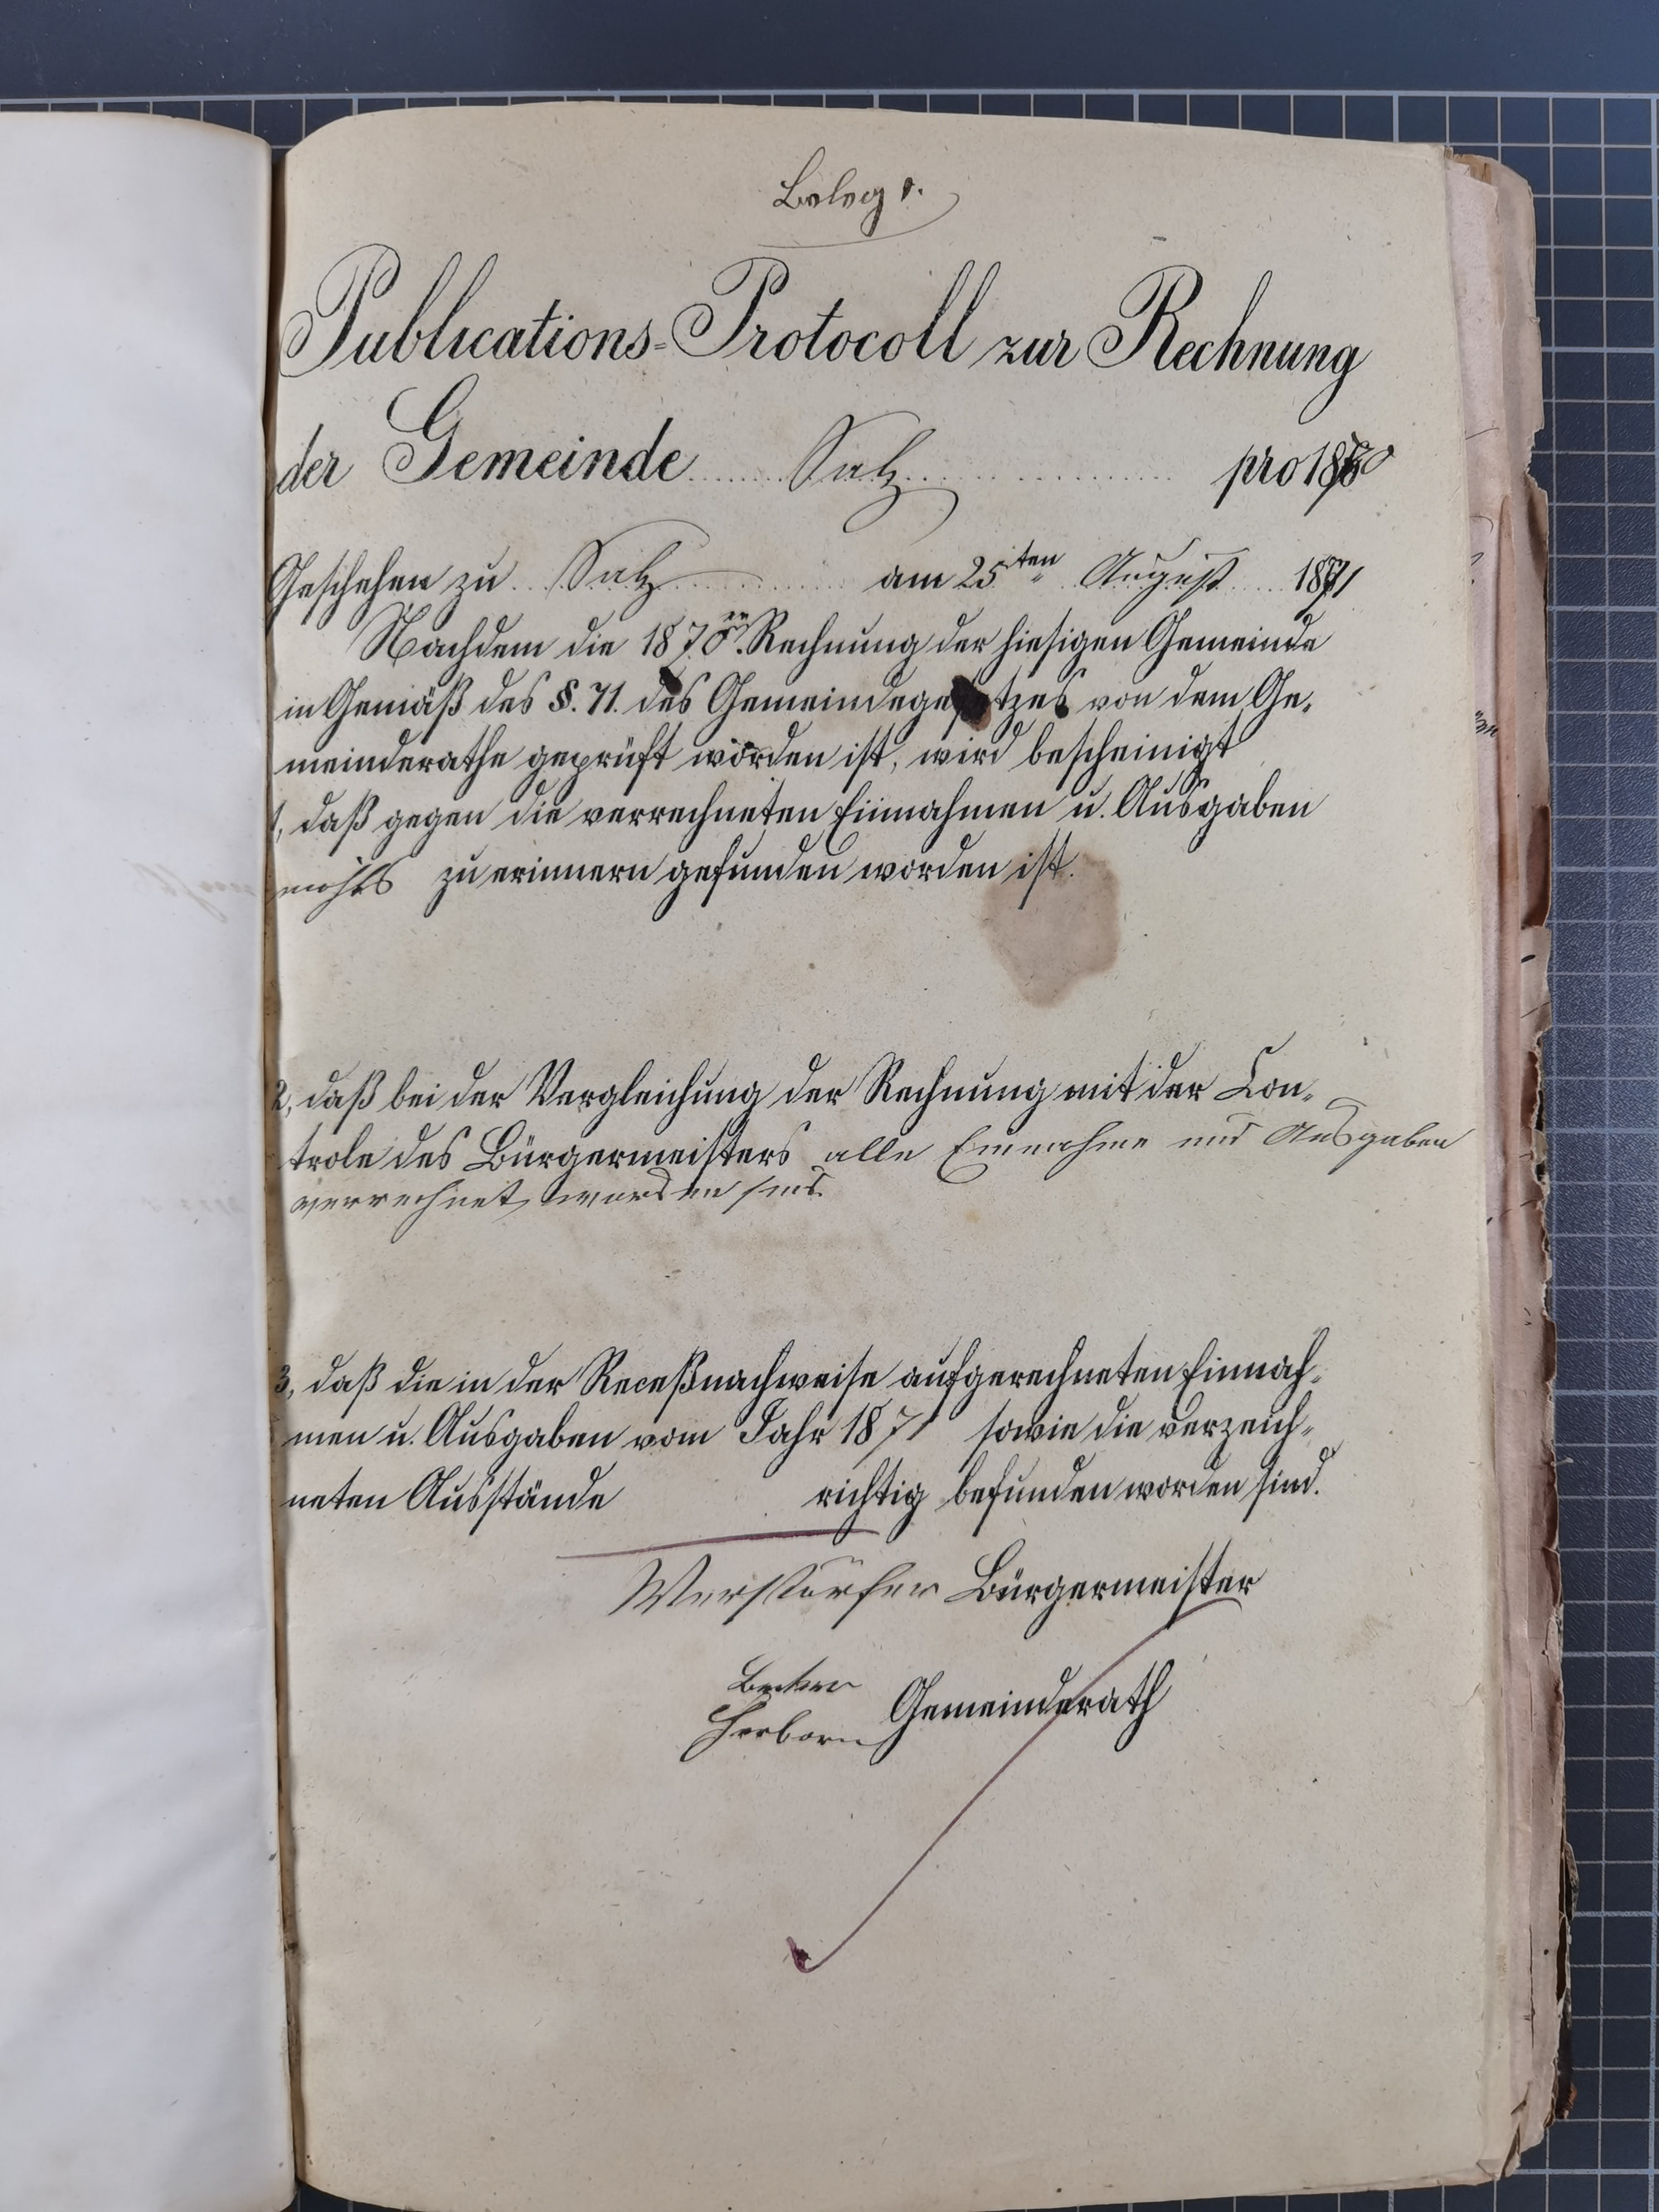 Beleg 1.
Publications-Protocoll zur Rechnung
der Gemeinde Salz pro 1870
Geschehen zu Salz am 25ten August 1871
Nachdem die 1870er Rechnung der hiesigen Gemeinde
in Gemäß des §. 71. des Gemeindegesetzes von dem Ge-
meinderathe geprüft worden ist, wird bescheinigt
1, daß gegen die verrechneten Einnahmen u. Ausgaben
nichts zu erinnern gefunden worden ist.
2, daß bei der Vergleichung der Rechnung mit der Con-
trole des Bürgermeisters alle Einnahme und Ausgaben
verrechnet worden sind.
3, daß die in der Receßnachweise aufgerechneten Einnah-
men u. Ausgaben vom Jahr 1871 sowie die verzeich-
neten Ausstände richtig befunden worden sind.
Bürgermeister
Becker
Herborn Gemeinderath